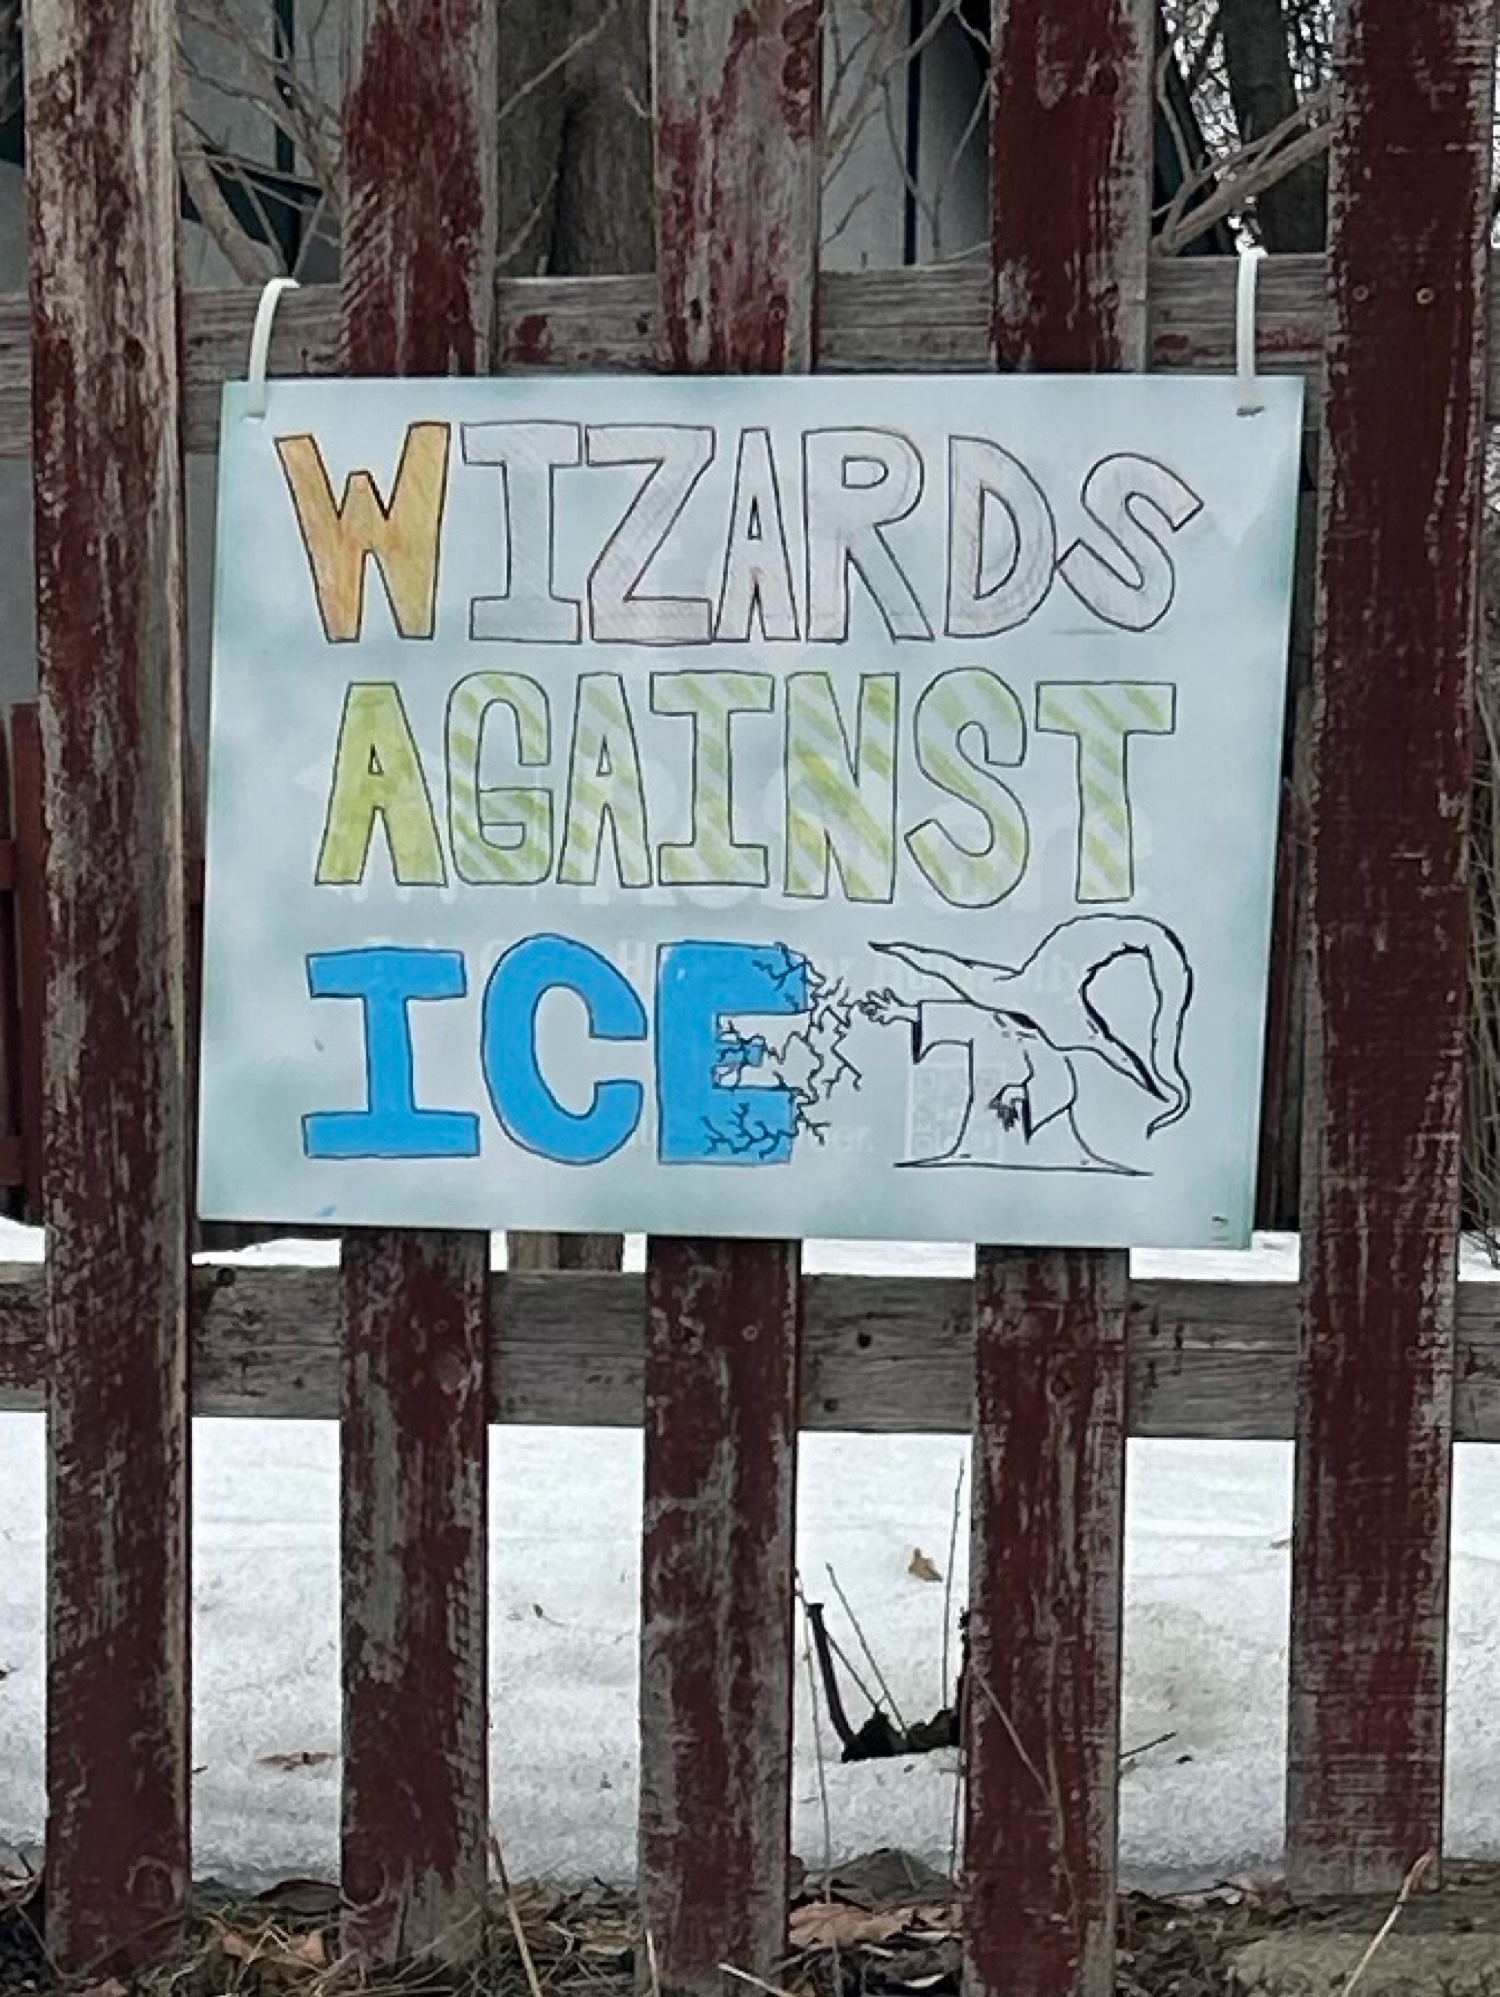 WIZARDS
AGAINST
ICE